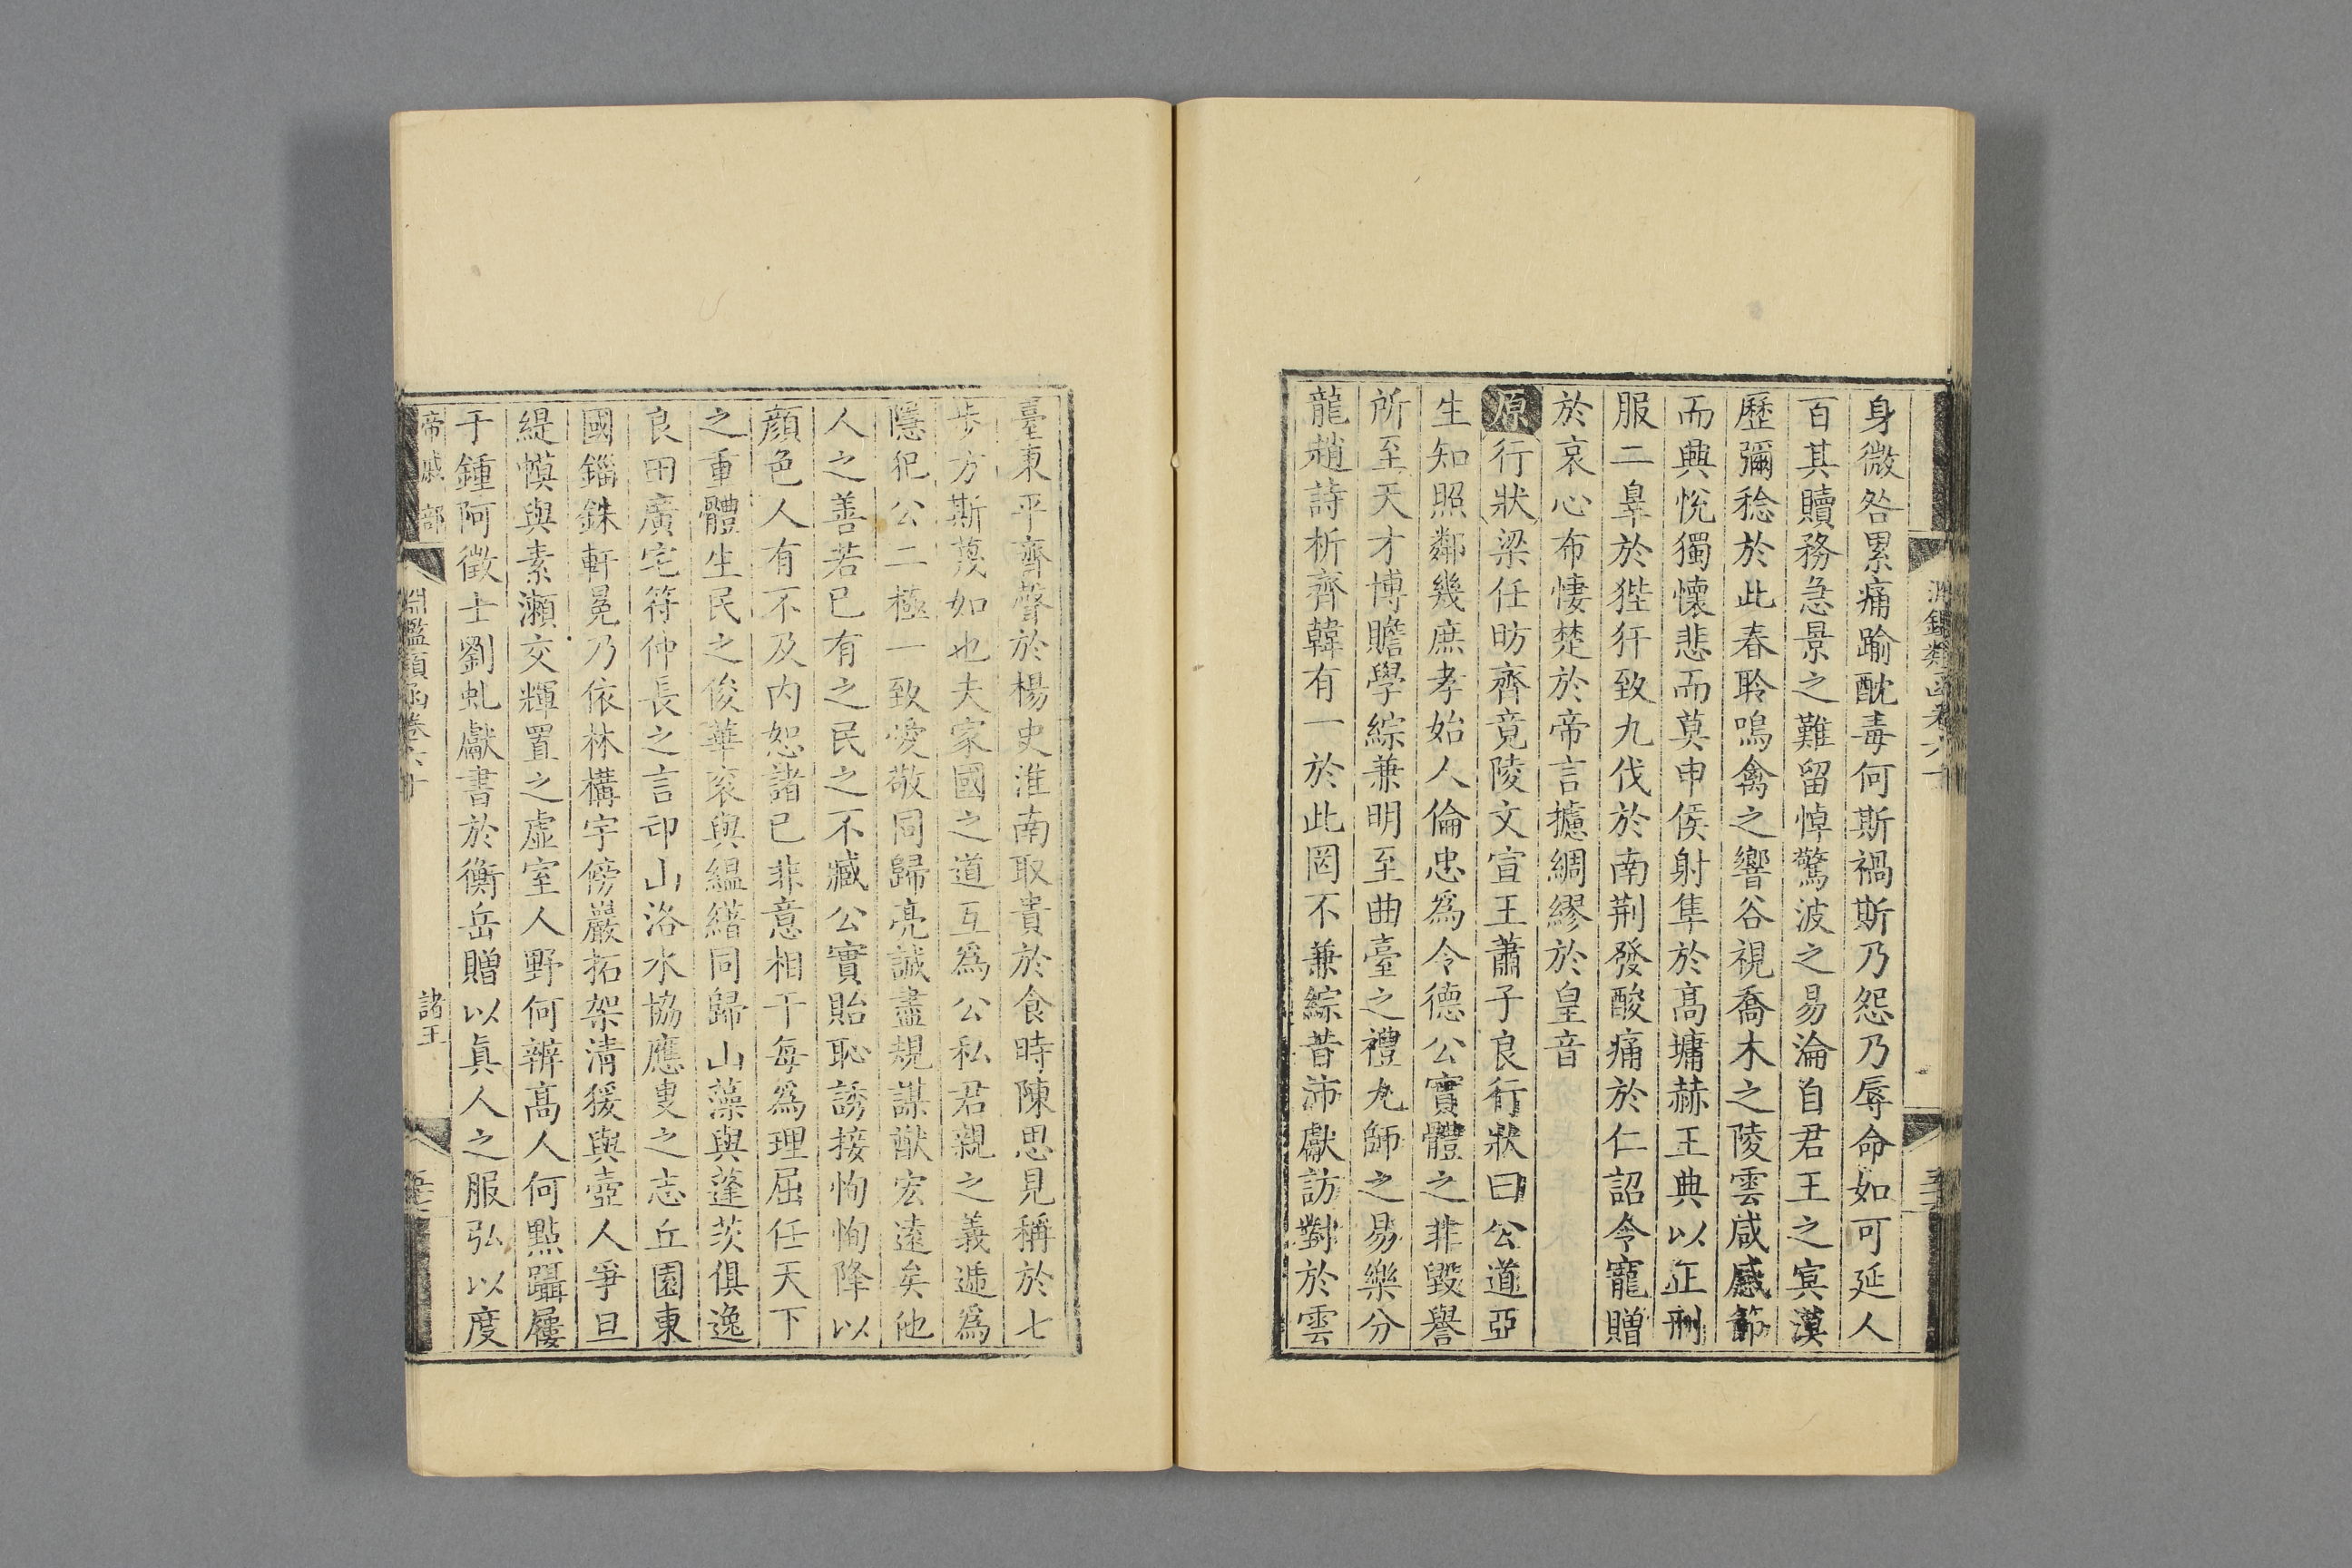 身微咎累痛踰酖毒何斯禍斯乃怨乃辱命如可延人
百其贖務急景之難留悼驚波之易淪自君王之寘漠
歷彌稔於此春聆鳴禽之響谷視喬木之陵雲咸感節
而興悅獨懷悲而莫申侯射隼於高墉赫王典以正刑
服二辠於狴犴致九伐於南荆發酸痛於仁詔令寵贈
於哀心布悽楚於帝言攄綢繆於皇音
原行狀梁任昉齊竟陵文宣王蕭子良行狀曰公道亞
生知照鄰幾庶孝始人倫忠爲令德公實體之非毀譽
所至天才博贍學綜兼明至曲臺之禮九師之易樂分
龍趙詩析齊韓有一於此罔不兼綜昔沛獻訪對於雲
臺東平齊聲於楊史淮南取貴於食時陳思見稱於七
步方斯蔑如也夫家國之道互爲公私君親之義遞爲
隱犯公二極一致愛敬同歸亮誠盡規謀猷宏遠矣他
人之善若已有之民之不臧公實貽恥誘接恂恂降以
顏色人有不及內恕諸已非意相干每爲理屈任天下
之重體生民之俊華衮與緼縉同歸山藻與蓬茨俱逸
良田廣宅符仲長之言卭山洛水協應叟之志丘園東
國錙銖軒冕乃依林構宇傍巖拓架淸猨與壺人爭旦
緹幙與素瀨交輝置之虛室人野何辨高人何點躡屨
于鍾阿徵士劉虬獻書於衡岳贈以眞人之服弘以度
帝戚部
淵鑑類函卷六十
諸王